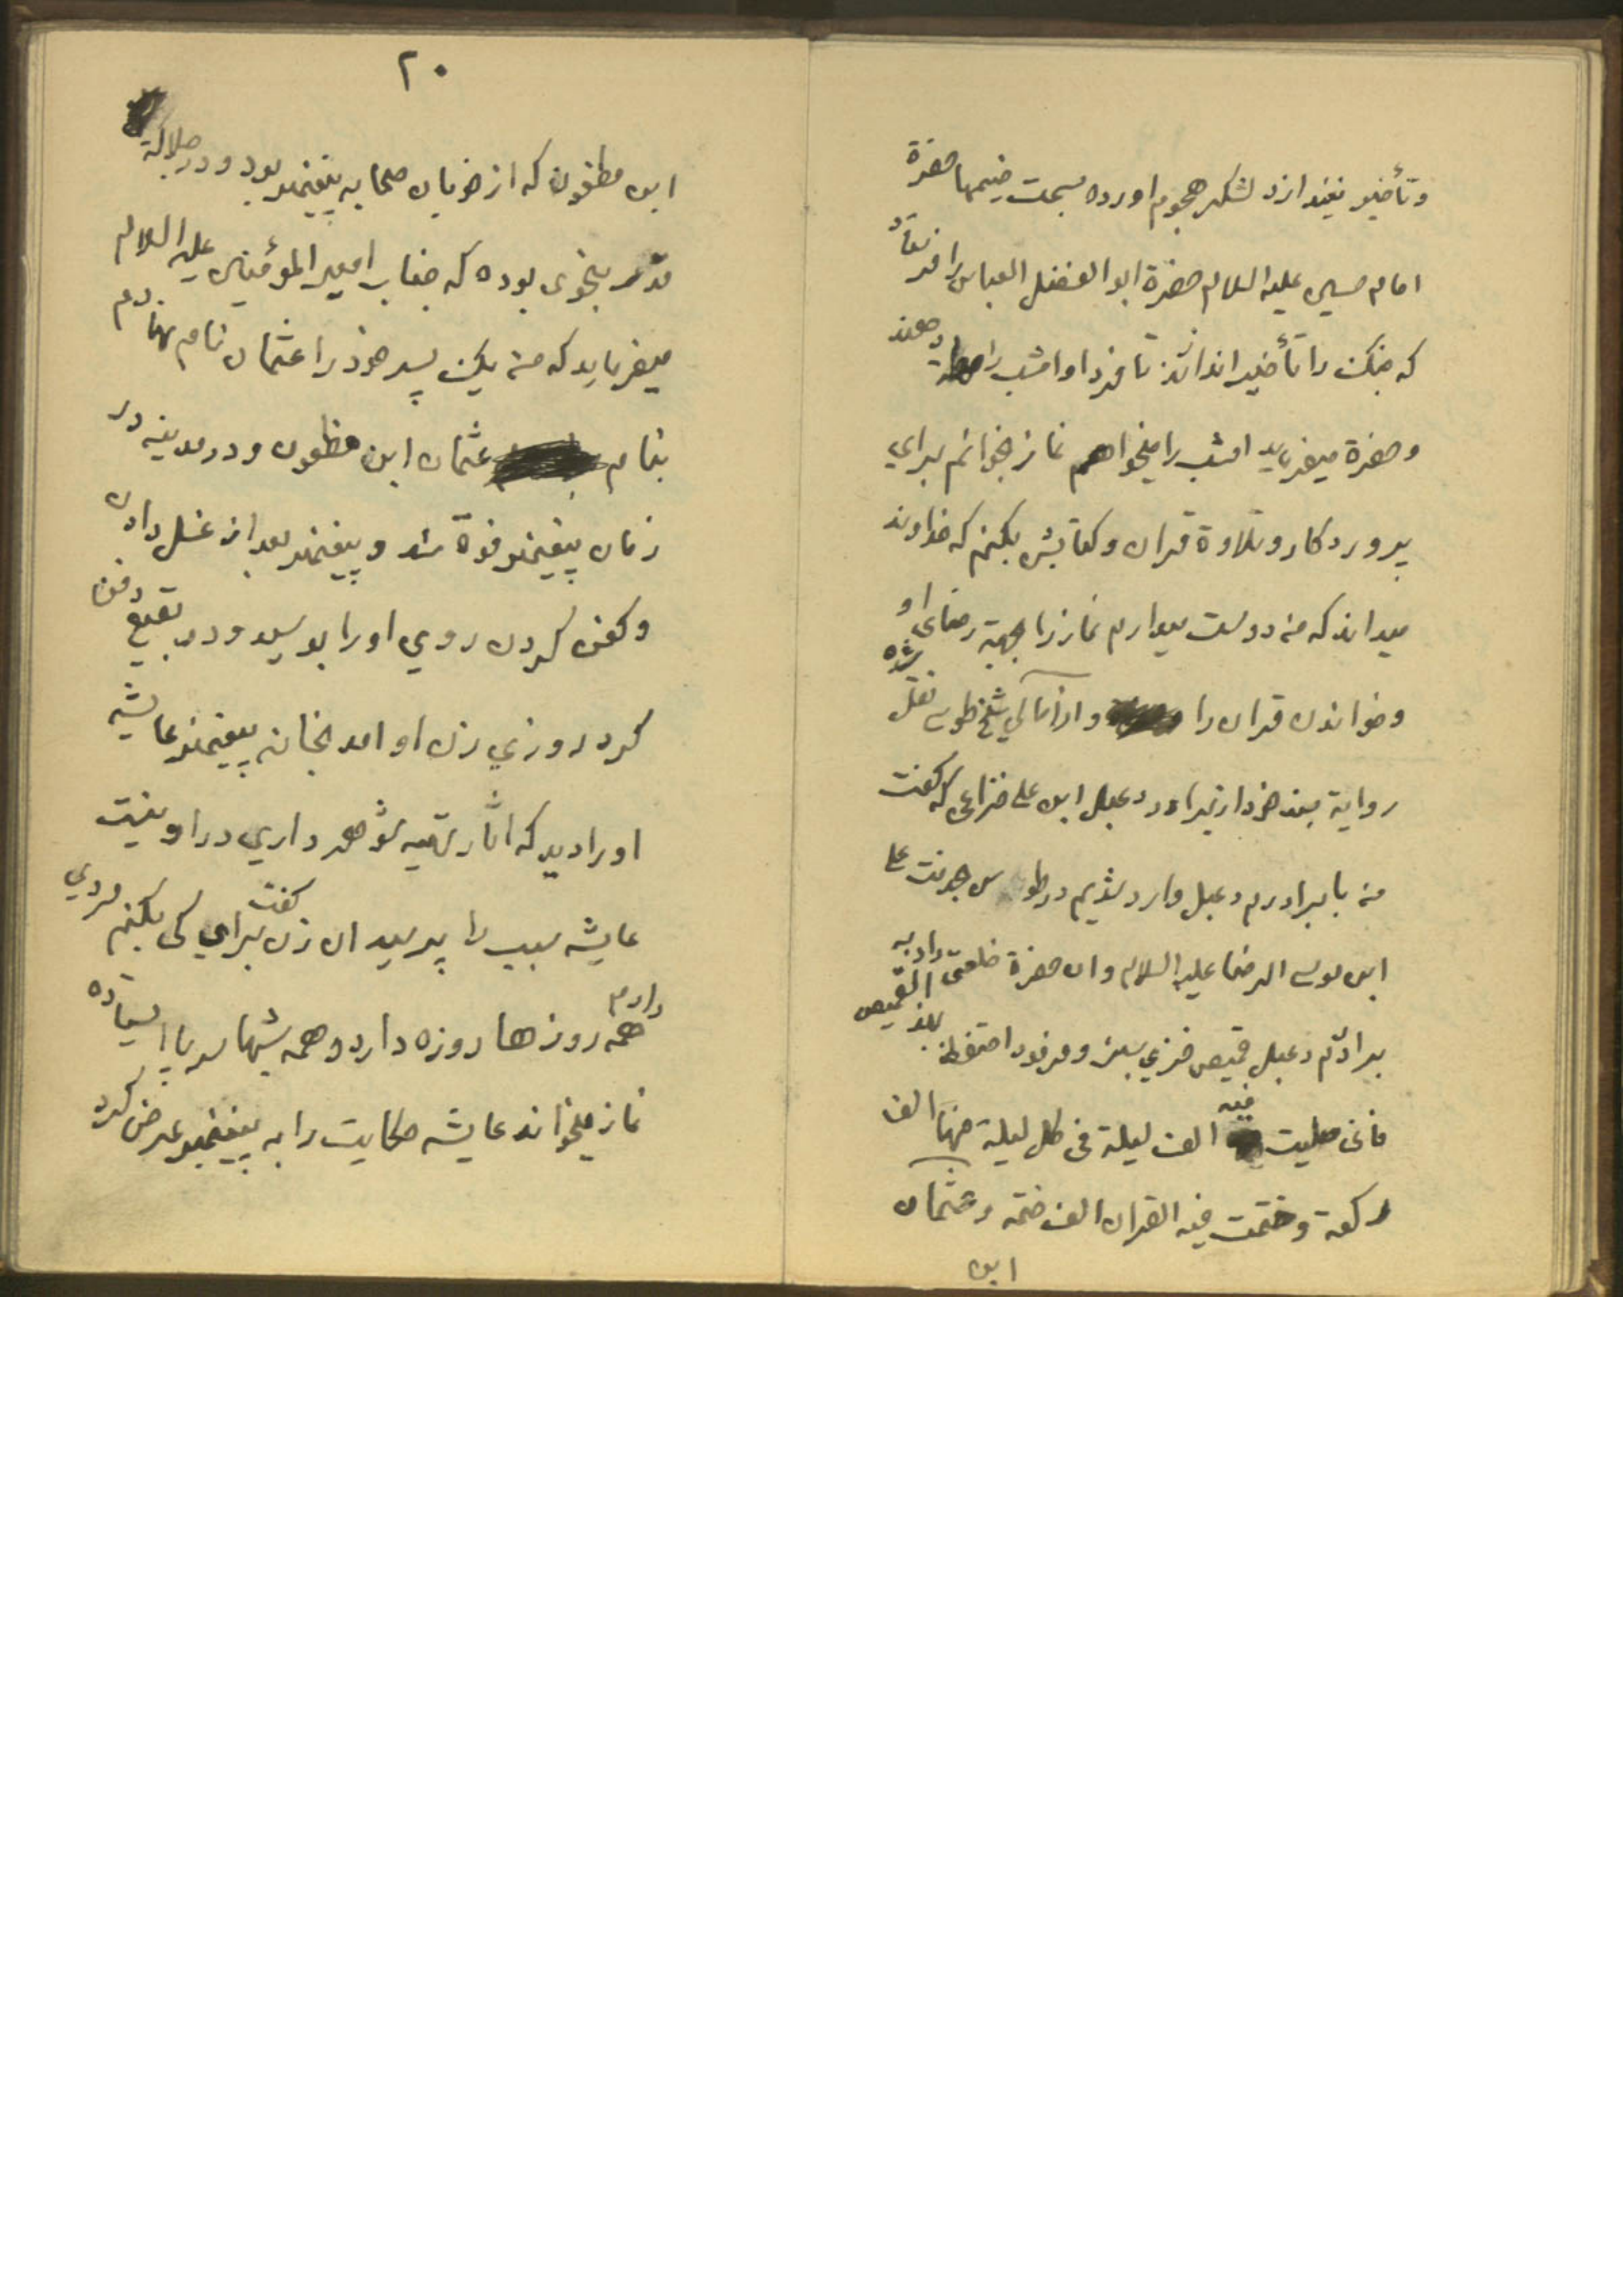 وتأخیر نیندازد لشکر هجوم اورده بسمت خیمها حضرة
امام حسین علیه السلام حضرة ابو الفضل العباس را فرستاد
که جنک را تأخیر اندازند تا فردا و امشب را مهلة دهند
وحضرة میفرماید امشب را میخواهم نماز بخوانم برای
پروردکار و تلاوة قران وکتابش بکنم که خداوند
میداند که من دوست میدارم نماز را بجهة رضای او
وخواندن قران را واز امالی شیخ طوسی نقل شده
روایة بعد از برادر دعبل ابن علی خزاعی که کفت
من با برادرم دعبل وارد شدیم در طوس خدمت علی
ابن موسی الرضا علیه السلام وان حضرة خلعتی داد به
برادرم دعبل قمیص خزی سبز وفرمود احتفظ بهذ القمیص
فانی صلیت فیه الف لیلة فی کل لیلة منها الف
رکعة وختمت فیه القران الف ختمه وعثمان
ابن
۲۰
ابن مظعون که از خوبان صحابه پیغمبر بود ودر جلالة
قدر بنحوی بوده که جناب امیر المؤمنین علیه السلام
میفرماید که من یک پسر خود را عثمان نام نهادم
بنام عثمان ابن مظعون ودر مدینه در
زمان پیغمبر فوة شد و پیغمبر بعد از غسل دادن
وکفن کردن روی اورا بوسید ودر بقیع دفن
کرد روزی زن او امد بخانه پیغمبر عایشه
اورا دید که اثار شوهر داری در او نیست
عایشه سبب را پرسید ان زن کفت برای کی بکنم مردی
دارم همه روزها روزه دارد وهمه شبها سرپا ایستاده
نماز میخواند عایشه حکایت را به پیغمبر عرض کرد